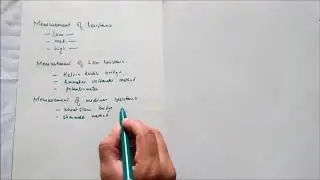 Measurement of Resistance
— Low —
— med —
— high —
Measurement of Low resistance
- Kelvin double bridge
- Ammeter voltmeter method
- potentiometer
Measurement of medium resistance
- wheat stone bridge
- method